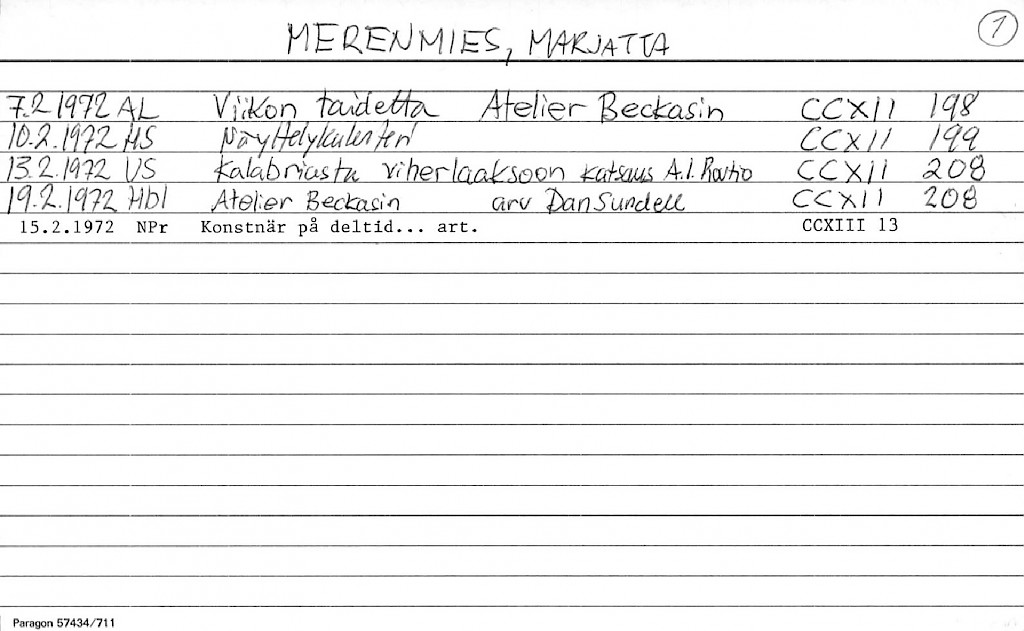 MERENMIES, MARJATTA 1
7.2.1972 AL Viikon taidetta Atelier Beckasin CCXII 198
10.2.1972 HS Näyttelykalenteri CCXII 199
13.2.1972 US Kalabriasta viherlaaksoon katsaus A.I. Routio CCXII 208
19.2.1972 Hbl Atelier Beckasin arv Dan Sundell CCXII 208
15.2.1972 NPr Konstnär på deltid... art. CCXIII 13
Paragon 57434/711